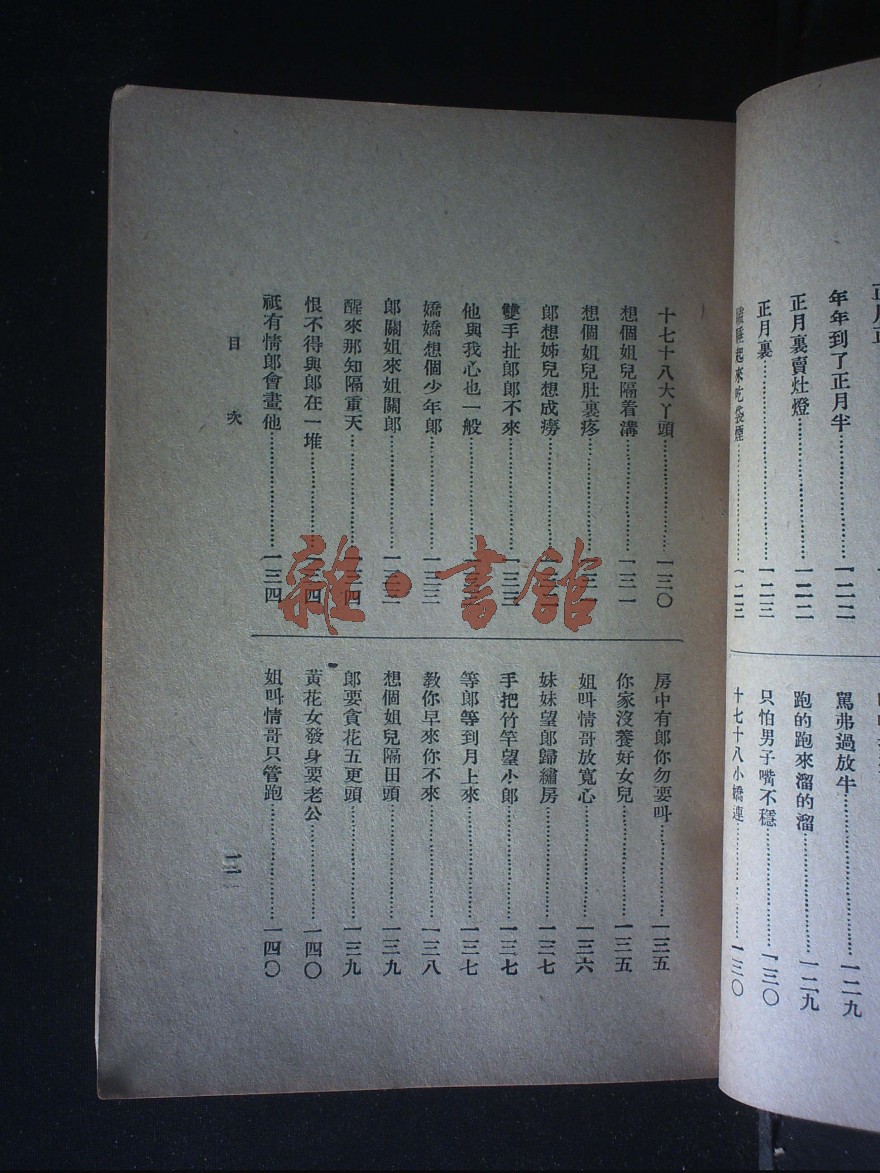 年年到了正月半⋯⋯一二二
正月裏賣灶燈⋯⋯一二二
正月裏⋯⋯一二三
起來吃袋煙⋯⋯一二三
罵弗過放牛⋯⋯一二九
跑的跑來溜的溜⋯⋯一二九
只怕男子嘴不穩⋯⋯一三〇
十七十八小嬌連⋯⋯一三〇
十七十八大丫頭⋯⋯一三〇
想個姐兒隔着溝⋯⋯一三一
想個姐兒肚裏疼⋯⋯
郎想姊兒想成癆⋯⋯
雙手扯郎郎不來⋯⋯一三三
他與我心也一般⋯⋯
嬌嬌想個少年郎⋯⋯一三三
郎關姐來姐關郎⋯⋯
醒來那知隔重天⋯⋯一三四
恨不得與郎在一堆⋯⋯一三四
祇有情郎會畫他⋯⋯一三四
房中有郎你勿要叫⋯⋯一三五
你家沒養好女兒⋯⋯一三五
姐叫情哥放寬心⋯⋯一三六
妹妹望郎歸繡房⋯⋯一三七
手把竹竿望小郎⋯⋯一三七
等郎等到月上來⋯⋯一三七
教你早來你不來⋯⋯一三八
想個姐兒隔田頭⋯⋯一三九
郎要貪花五更頭⋯⋯一三九
黃花女發身要老公⋯⋯一四〇
姐叫情哥只管跑⋯⋯一四〇
目次
雜·書館